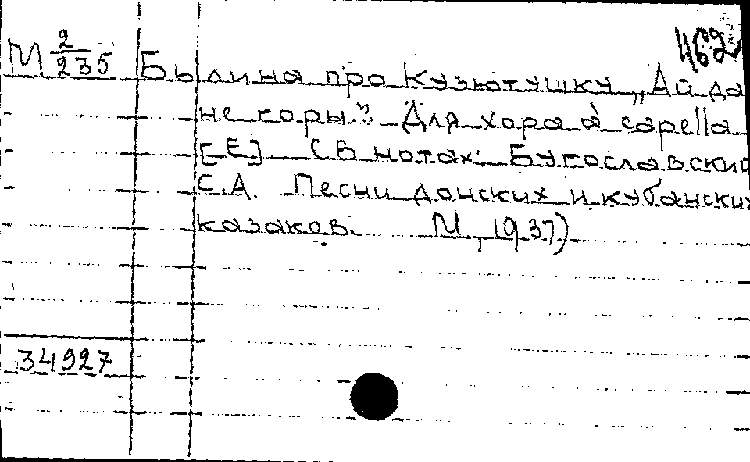 462
М 2/235 Былина про Кузютушку „Ай да
не горы". Для хора a capella
[Е] (В нотах: Бугославский
С.А. Песни донских и кубанских
казаков. М., 1937)
34927